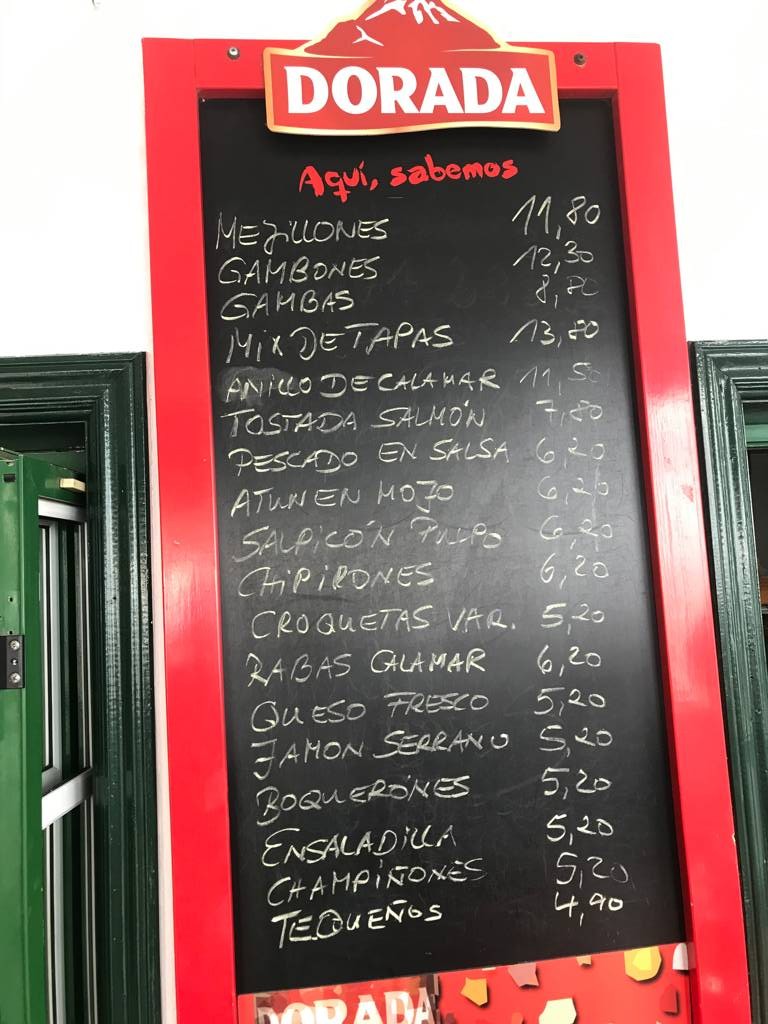 DORADA
Aquí, sabemos
MEJILLONES 11,80
GAMBONES 12,30
GAMBAS 8,80
MIX DE TAPAS 13,80
ANILLO DE CALAMAR 11,50
TOSTADA SALMÓN 7,80
PESCADO EN SALSA 6,20
ATUN EN MOJO 6,20
SALPICÓN PULPO 6,20
CHIPIRONES 6,20
CROQUETAS VAR. 5,20
RABAS CALAMAR 6,20
QUESO FRESCO 5,20
JAMON SERRANO 5,20
BOQUERONES 5,20
ENSALADILLA 5,20
CHAMPIÑONES 5,20
TEQUEÑOS 4,90
DORADA